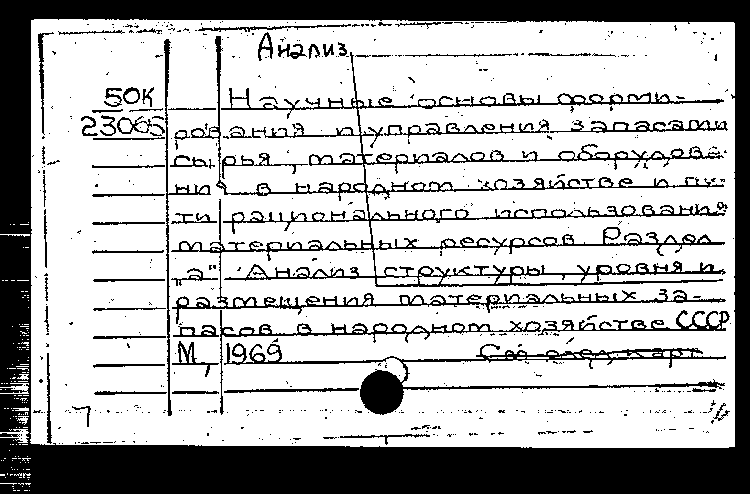 Анализ
50К Научные основы форми-
23065 рования и управления запасами
сырья, материалов и оборудова-
ния в народном хозяйстве и пу-
ти рационального использования
материальных ресурсов. Раздел
„а" Анализ структуры, уровня и
размещения материальных за-
пасов в народном хозяйстве СССР
М, 1969 См. след. карт
7